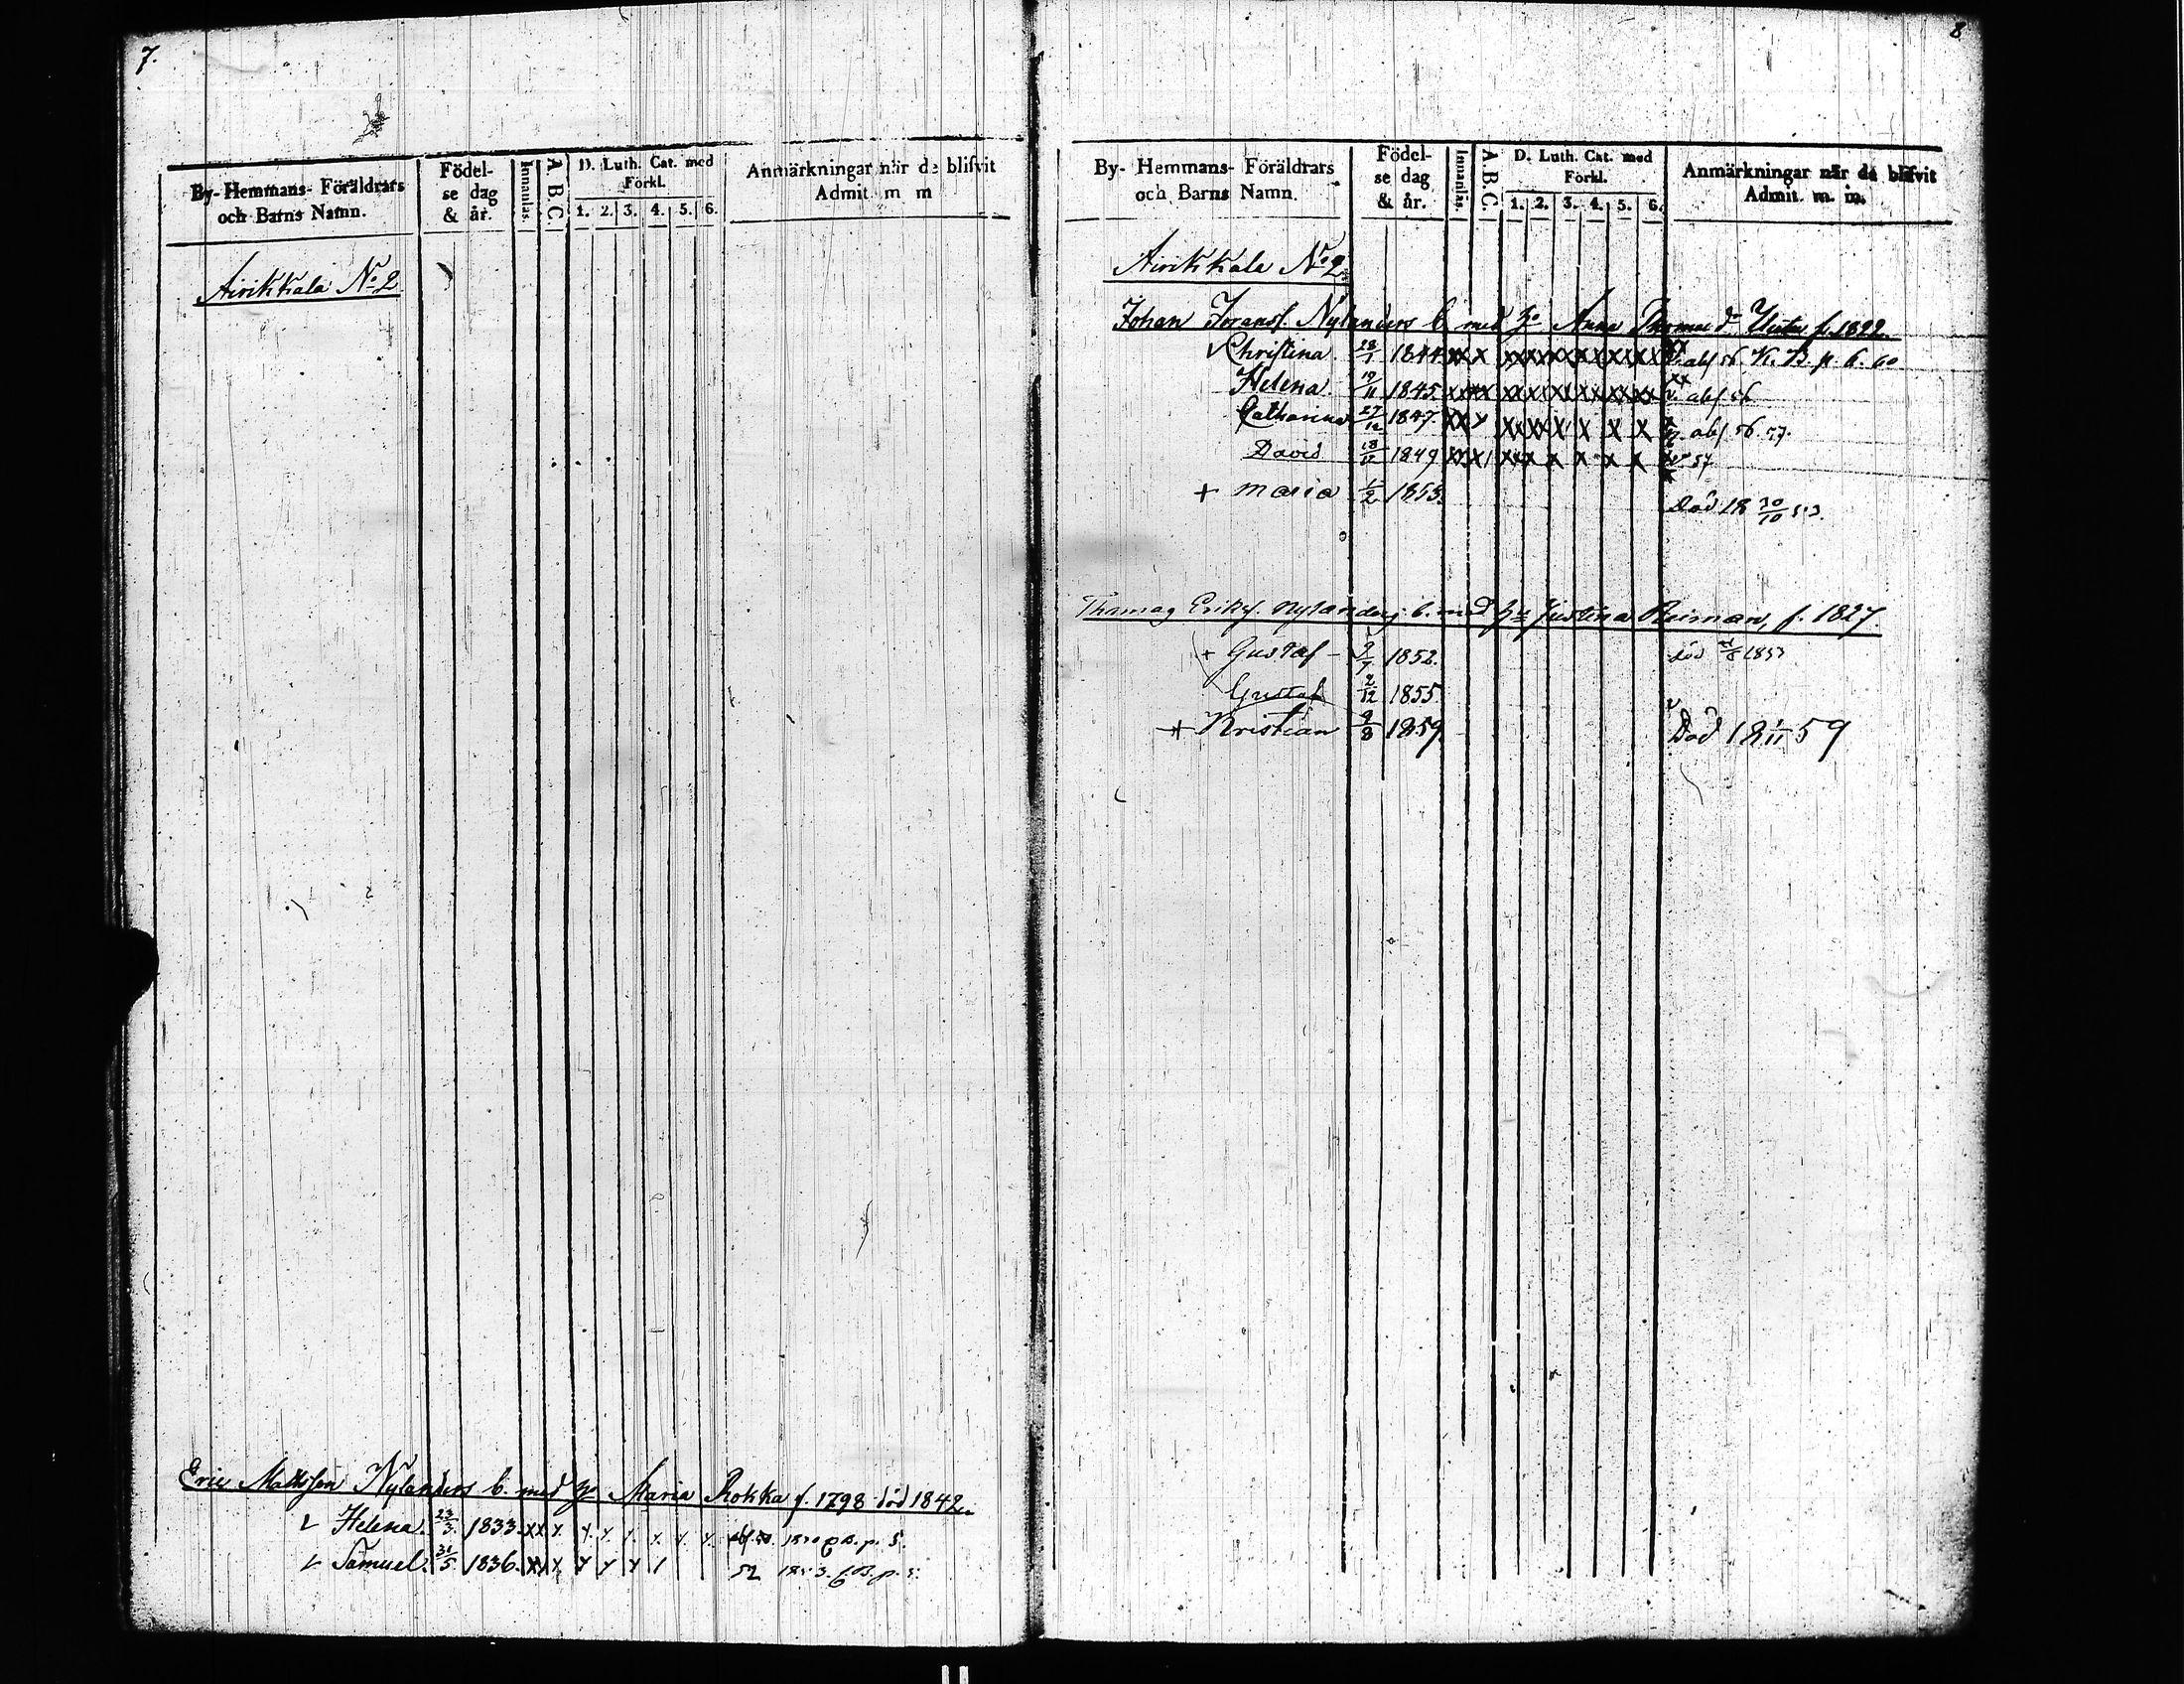 7.
By- Hemmans- Föräldrars och Barns Namn.
Födelse dag & år.
Innanläs.
A. B. C.
D. Luth. Cat. med Förkl.
1. 2. 3. 4. 5. 6.
Anmärkningar när de blifvit Admit. m m
Airikkala No 2
Eric Mattsson Nylanders b. med Maria Rokka f. 1798 död 1842.
Helena. 23/3. 1833. xx x x x x x x x
Samuel. 31/5 1836. xx x x x x / 52
8
By- Hemmans- Föräldrars och Barns Namn.
Födelse dag & år.
Innanläs.
A. B. C.
D. Luth. Cat. med Förkl.
1. 2. 3. 4. 5. 6.
Anmärkningar när de blifvit Admit. m. m.
Airikkala No 2.
Johan Nylanders b. med Anna f. 1822.
Christina. 28/1 1844. abs 56. K. B. p. 6. 60
Helena. 19/11 1845. abs 56
Catharina 27/12 1847. abs 56. 57.
David 18/12 1849 57
+ Maria 1/2 1853. Död 18 30/10 53.
Thomas Eriks. Nylanders b. med Justina Reiman, f. 1827.
+ Gustaf - 9/7 1852. död 1853
Gustaf 2/12 1855.
+ Kristian 9/8 1859 Död 18 1/11 59